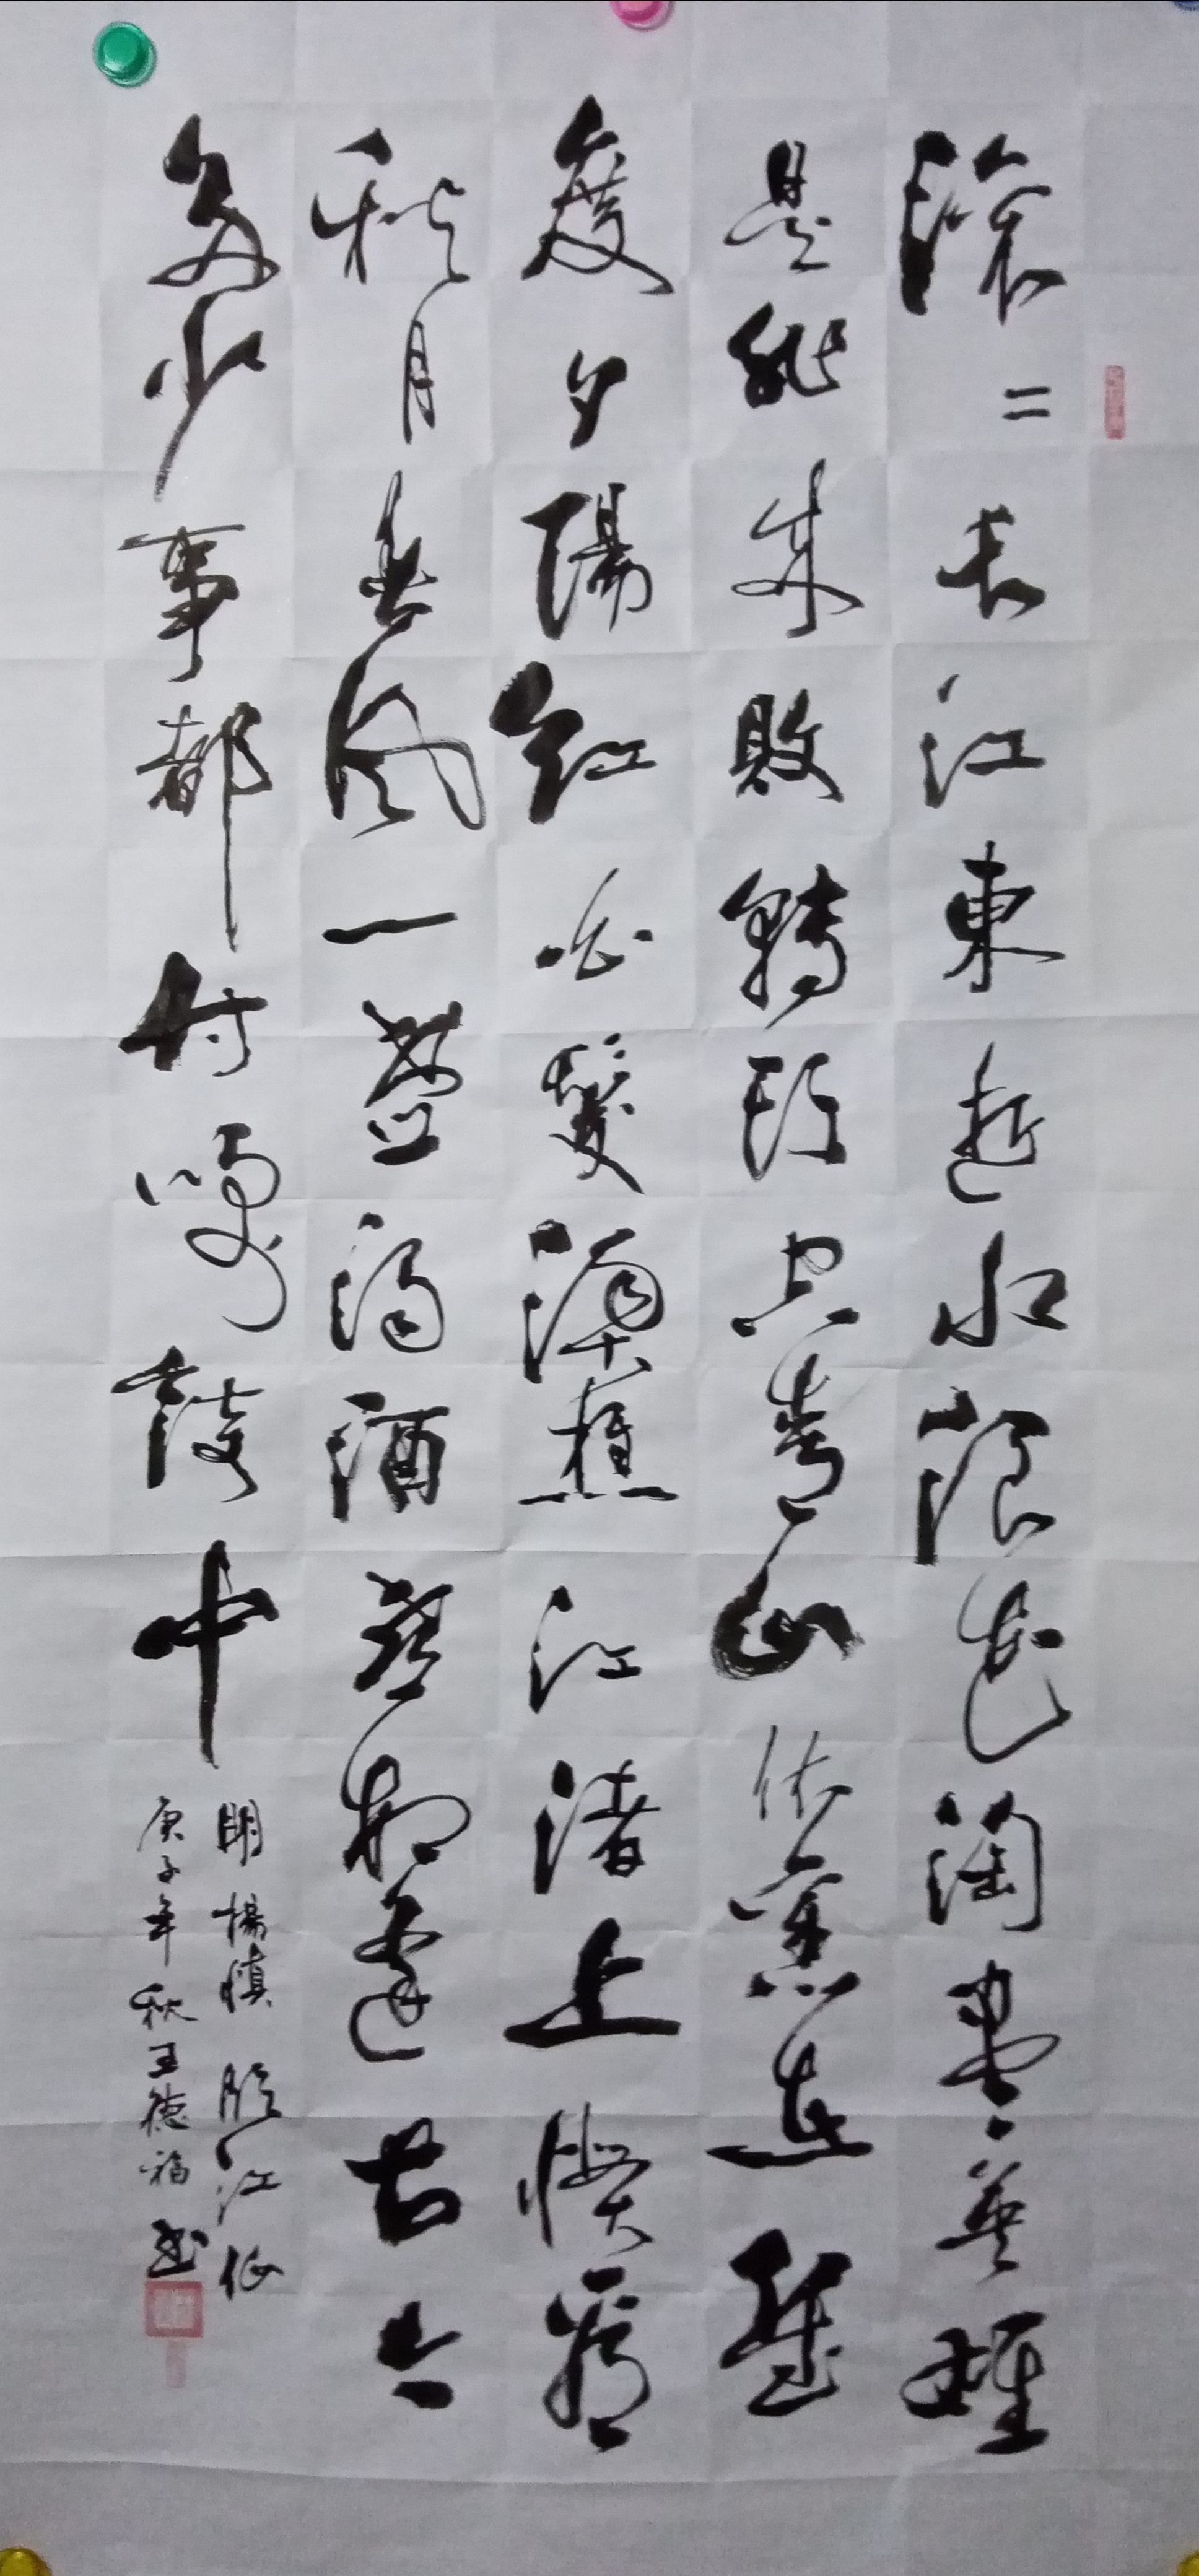 滾二長江東逝水浪花淘盡英雄
是非成敗轉頭空青山依舊在幾
度夕陽紅白髮漁樵江渚上慣看
秋月春風一壺濁酒喜相逢古今
多少事都付笑談中
明楊慎臨江仙
庚子年秋王德福書